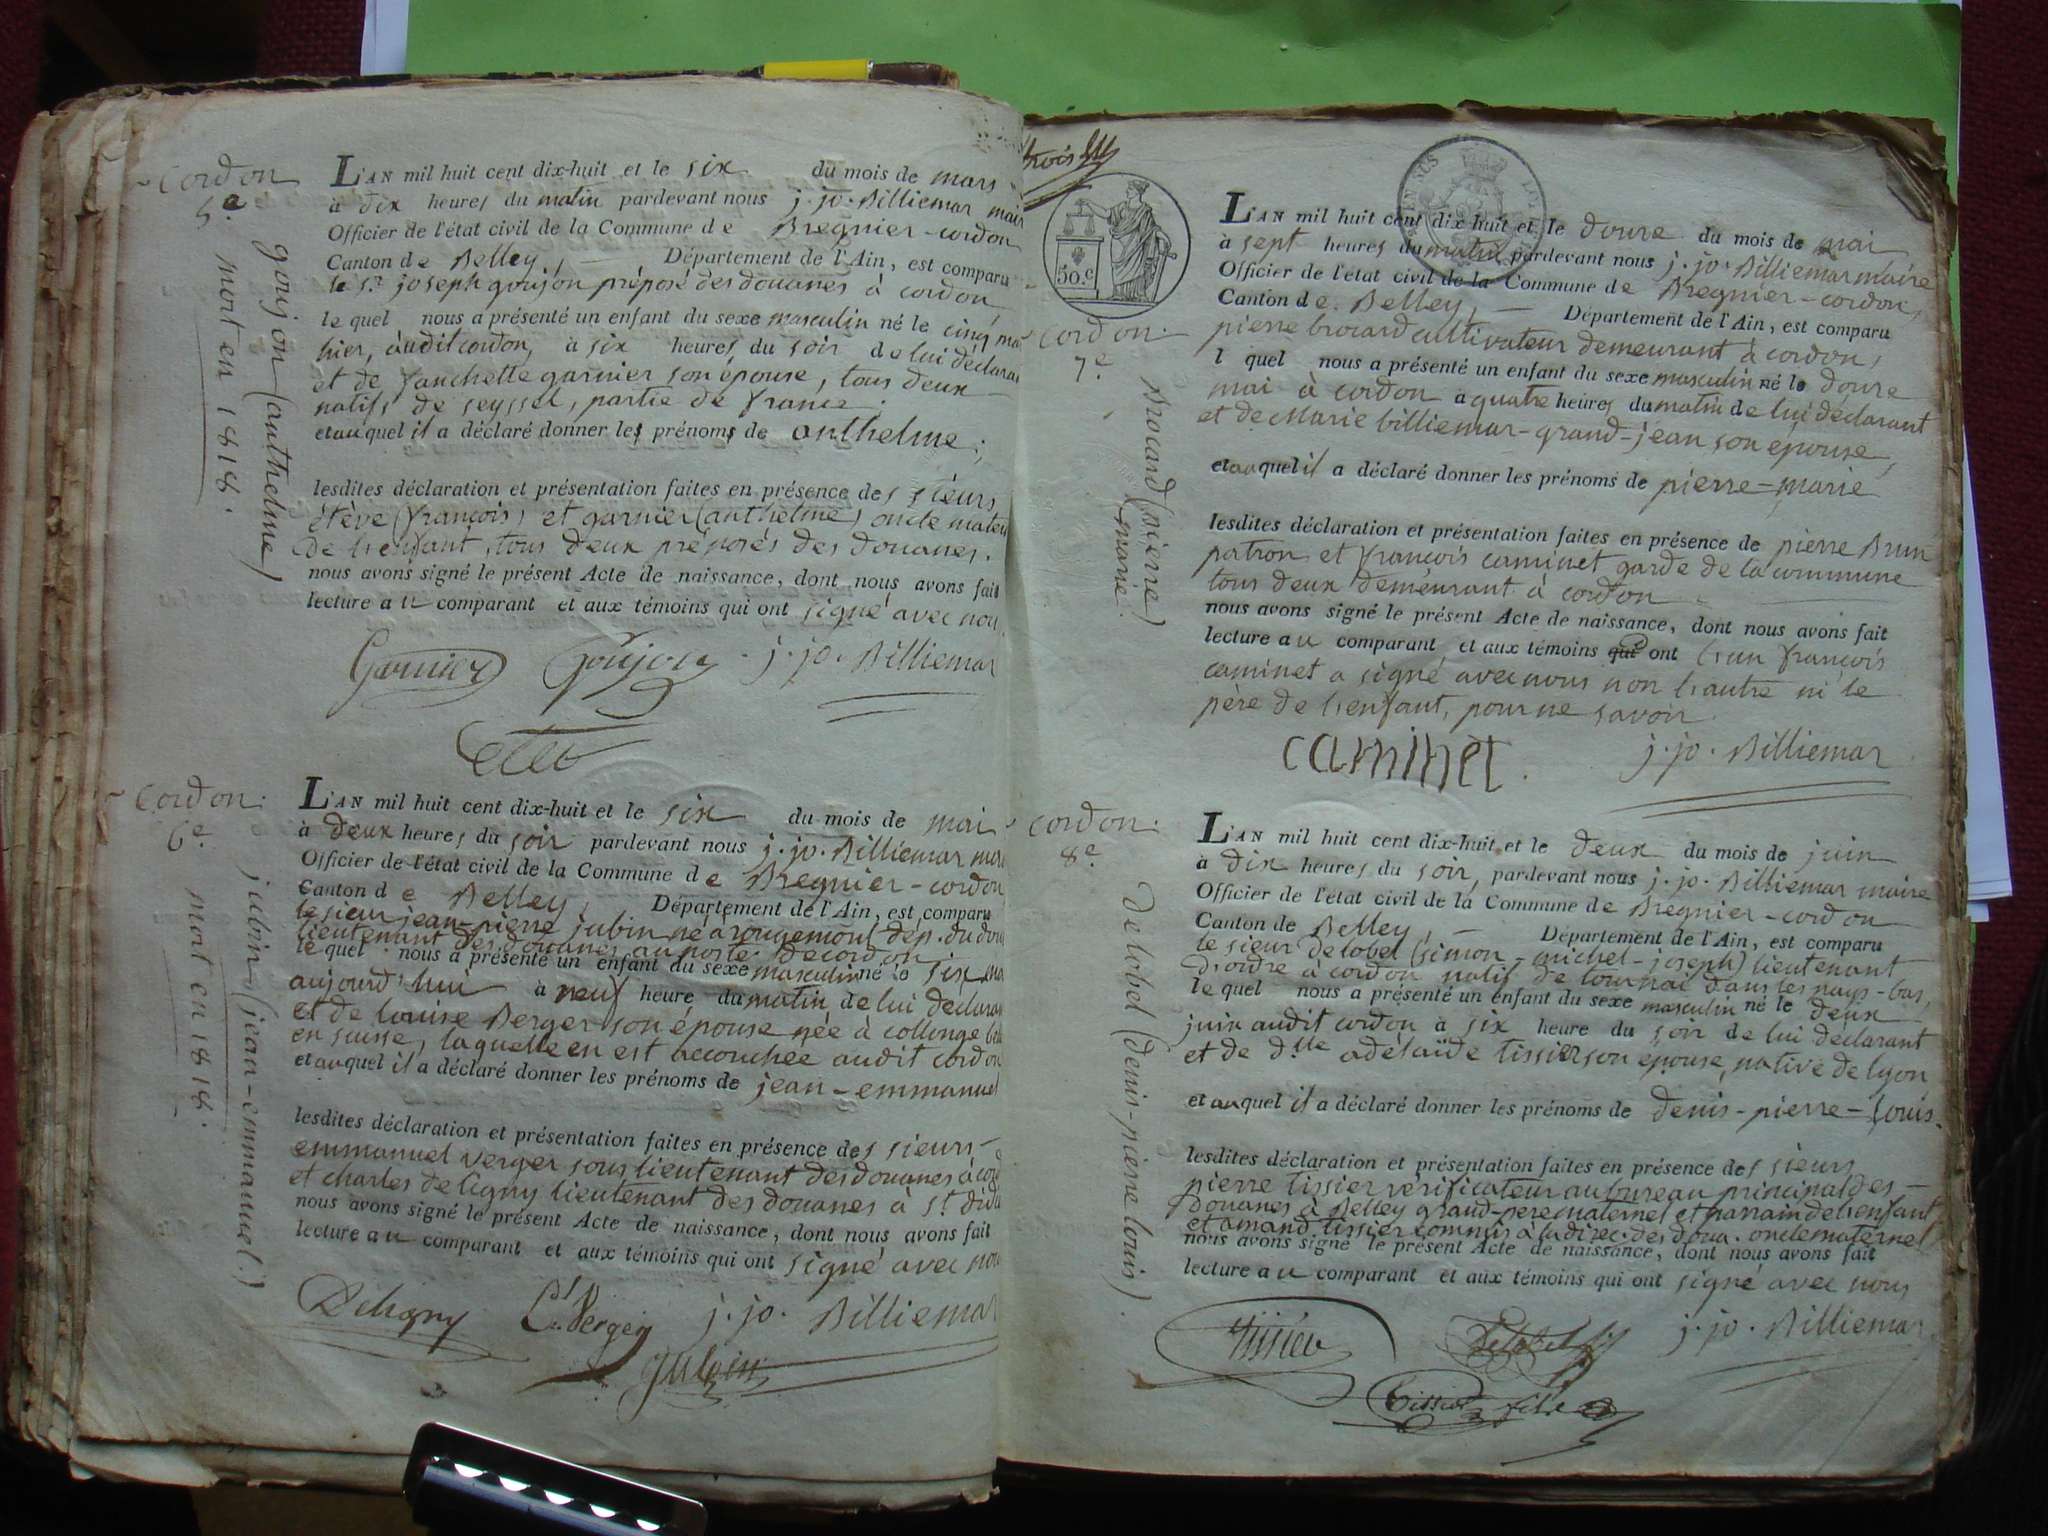 Cordon
5e.
goujon (anthelme)
mort en 1818.
L'AN mil huit cent dix-huit et le six du mois de mars
à dix heures du matin pardevant nous j. jo. Billiemar mair
Officier de l'état civil de la Commune de Bregnier-cordon
Canton de Belley, Département de l'Ain, est comparu
le Sr. joseph goujon préposé des douanes à cordon
le quel nous a présenté un enfant du sexe masculin né le cinq
hier, audit cordon, à six heures du soir de lui déclara
et de fanchette garnier son épouse, tous deux
natifs de seyssel, partie de france.
et auquel il a déclaré donner les prénoms de anthelme;
lesdites déclaration et présentation faites en présence des sieurs
étève (françois) et garnier (anthelme) oncle mater
de l'enfant, tous deux préposés des douanes.
nous avons signé le présent Acte de naissance, dont nous avons fait
lecture au comparant et aux témoins qui ont signé avec nou
Garnier Goujon j. jo. Billiemar
Cordon.
6e.
jubin (jean-emmanuel.)
mort en 1818.
L'AN mil huit cent dix-huit et le six du mois de mai
à deux heures du soir pardevant nous j. jo. Billiemar mair
Officier de l'état civil de la Commune de Bregnier-cordon
Canton de Belley, Département de l'Ain, est comparu
le sieur jean-pierre jubin né à rougemont dép. du dou
lieutenant des douanes au poste de cordon
le quel nous a présenté un enfant du sexe masculin né le six ma
aujourd'hui à neuf heure du matin de lui déclara
et de louise Berger son épouse née à collonge
en suisse, laquelle en est accouchée audit cordon
et auquel il a déclaré donner les prénoms de jean-emmanuel
lesdites déclaration et présentation faites en présence des sieurs
emmanuel verger sous lieutenant des douanes à cord
et charles de ligny lieutenant des douanes à St.
nous avons signé le présent Acte de naissance, dont nous avons fait
lecture au comparant et aux témoins qui ont signé avec nou
Deligny Verger j. jo. Billiemar
Jubin
trois
50.c
Cordon.
7e.
Brocard (pierre
marie.
L'AN mil huit cent dix-huit et le douze du mois de mai
à sept heures du matin pardevant nous j. jo. Billiemar maire
Officier de l'état civil de la Commune de Bregnier-cordon,
Canton de Belley, Département de l'Ain, est comparu
pierre brocard cultivateur demeurant à cordon,
l quel nous a présenté un enfant du sexe masculin né le douze
mai à cordon a quatre heures du matin de lui déclarant
et de Marie billiemar-grand-jean son épouse,
et auquel il a déclaré donner les prénoms de pierre-marie
lesdites déclaration et présentation faites en présence de pierre Brun
patron et françois caminet garde de la commune
tous deux demeurant à cordon
nous avons signé le présent Acte de naissance, dont nous avons fait
lecture au comparant, et aux témoins qui ont l'un françois
caminet a signé avec nous non l'autre ni le
père de l'enfant, pour ne savoir.
caminet. j. jo. Billiemar
Cordon.
8e.
Delobel (denis-pierre louis).
L'AN mil huit cent dix-huit et le deux du mois de juin
à dix heures du soir, pardevant nous j. jo. Billiemar maire
Officier de l'état civil de la Commune de Bregnier-cordon
Canton de Belley, Département de l'Ain, est comparu
le sieur delobel (simon-michel-joseph) lieutenant
d'ordre à cordon natif de tournai dans les pays-bas,
le quel nous a présenté un enfant du sexe masculin né le deux
juin audit cordon à six heure du soir de lui déclarant
et de dlle adélaïde tissier son épouse, native de lyon
et auquel il a déclaré donner les prénoms de denis-pierre-louis.
lesdites déclaration et présentation faites en présence des sieurs
pierre tissier vérificateur au bureau principal des
Douanes à Belley grand-père maternel et parrain de l'enfant
et amand tissier commis à la direc. des doua. oncle maternel
nous avons signé le présent Acte de naissance, dont nous avons fait
lecture au comparant et aux témoins qui ont signé avec nous
Tissier Delobel j. jo. Billiemar
Tissier fils